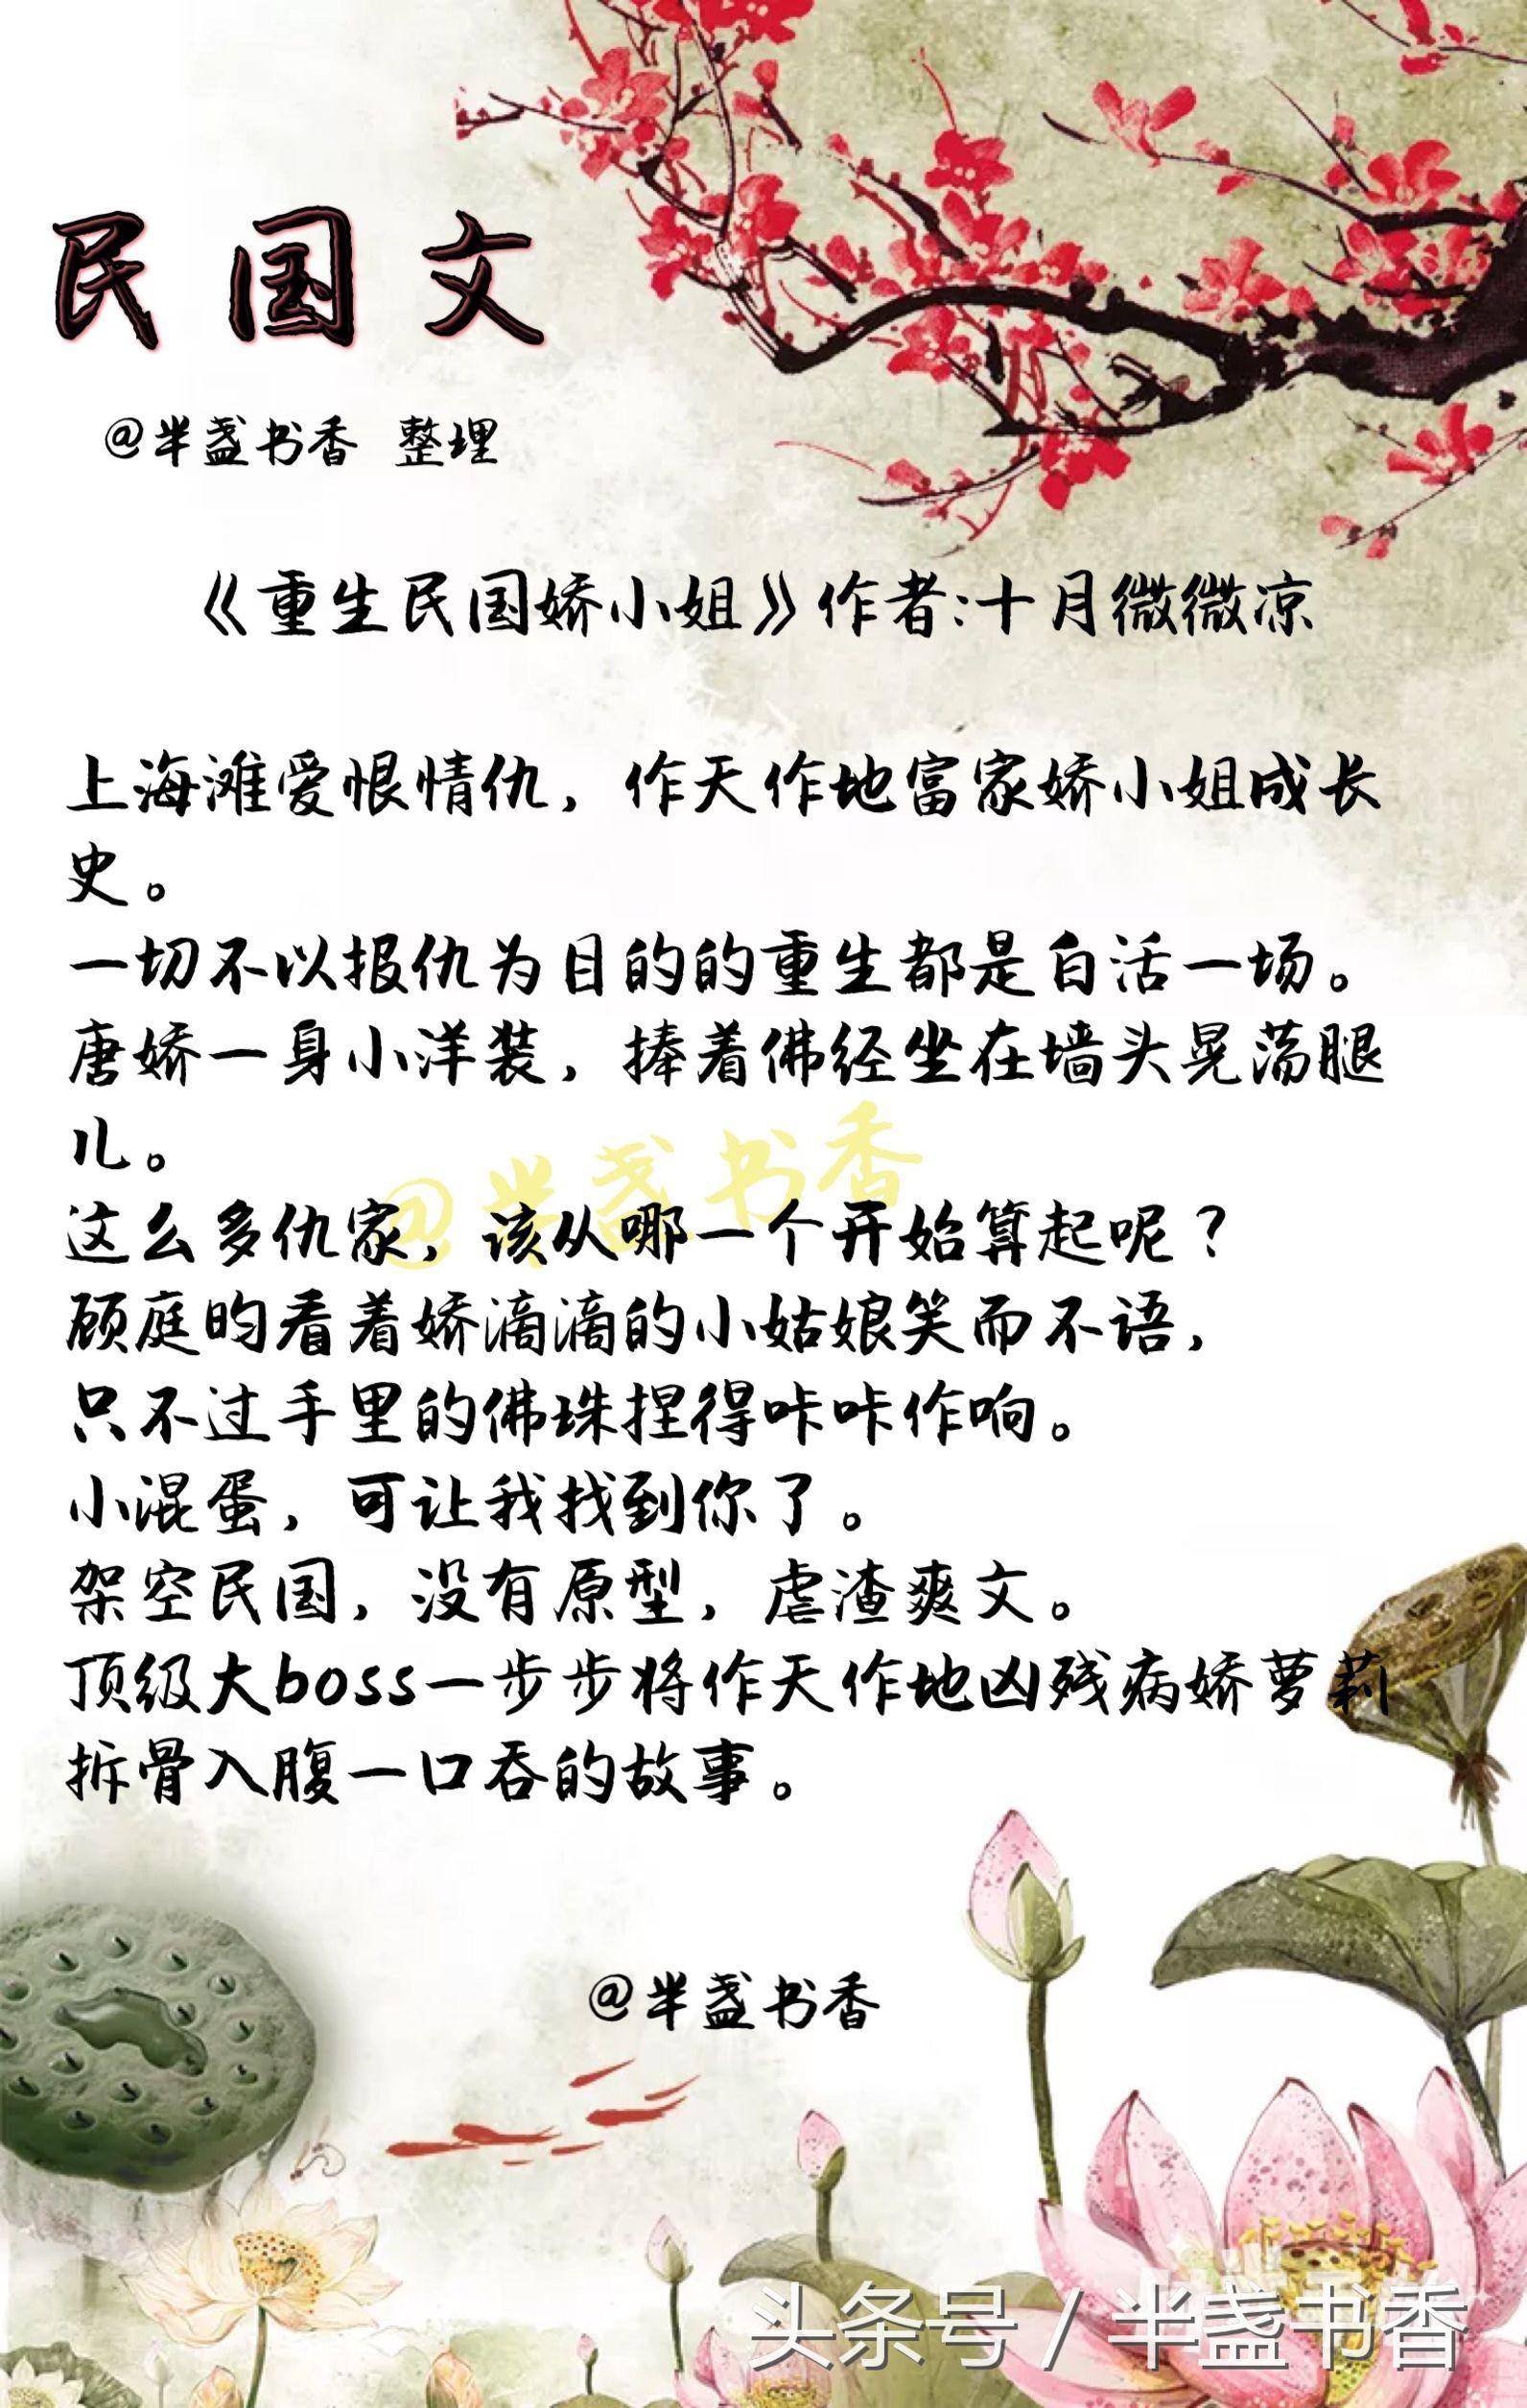 民国文
@半盏书香 整理
《重生民国娇小姐》作者:十月微微凉
上海滩爱恨情仇，作天作地富家娇小姐成长
史。
一切不以报仇为目的的重生都是白活一场。
唐娇一身小洋装，捧着佛经坐在墙头晃荡腿
儿。
@半盏书香
这么多仇家，该从哪一个开始算起呢？
顾庭昀看着娇滴滴的小姑娘笑而不语，
只不过手里的佛珠捏得咔咔作响。
小混蛋，可让我找到你了。
架空民国，没有原型，虐渣爽文。
顶级大boss一步步将作天作地凶残病娇萝莉
拆骨入腹一口吞的故事。
@半盏书香
头条号 / 半盏书香